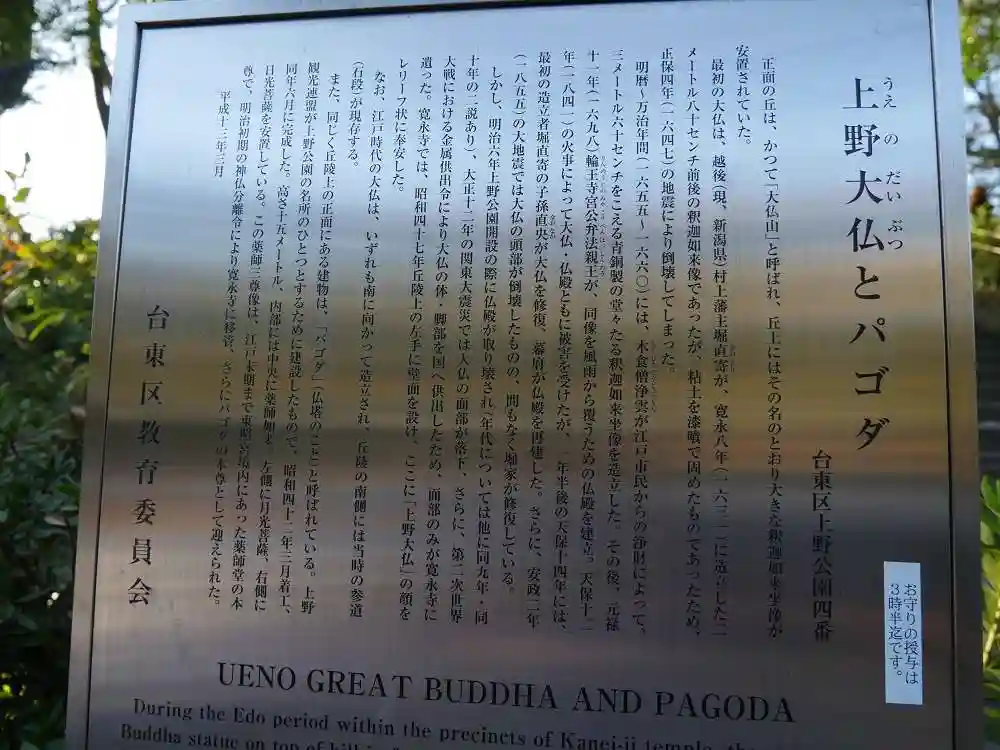 上野大仏とパゴダ
うえ の だい ぶつ
台東区上野公園四番
正面の丘は、かつて「大仏山」と呼ばれ、丘上にはその名のとおり大きな釈迦如来坐像が
安置されていた。
最初の大仏は、越後(現、新潟県)村上藩主堀直寄が、寛永八年(一六三一)に造立した二
メートル八十センチ前後の釈迦如来像であったが、粘土を漆喰で固めたものであったため、
正保四年(一六四七)の地震により倒壊してしまった。
明暦~万治年間(一六五五~一六六〇)には、木食僧浄雲が江戸市民からの浄財によって、
三メートル六十センチをこえる青銅製の堂々たる釈迦如来坐像を造立した。その後、元禄
十一年(一六九八)輪王寺宮公弁法親王が、同像を風雨から覆うための仏殿を建立。天保十二
年(一八四一)の火事によって大仏・仏殿ともに被害を受けたが、一年半後の天保十四年には、
最初の造立者堀直寄の子孫直央が大仏を修復、幕府が仏殿を再建した。さらに、安政二年
(一八五五)の大地震では大仏の頭部が倒壊したものの、間もなく堀家が修復している。
しかし、明治六年上野公園開設の際に仏殿が取り壊され(年代については他に同九年・同
十年の二説あり)、大正十二年の関東大震災では大仏の面部が落下、さらに、第二次世界
大戦における金属供出令により大仏の体・脚部を国へ供出したため、面部のみが寛永寺に
遺った。寛永寺では、昭和四十七年丘陵上の左手に壁面を設け、ここに「上野大仏」の顔を
レリーフ状に奉安した。
なお、江戸時代の大仏は、いずれも南に向かって造立され、丘陵の南側には当時の参道
(石段)が現存する。
また、同じく丘陵上の正面にある建物は、「パゴダ」(仏塔のこと)と呼ばれている。上野
観光連盟が上野公園の名所のひとつとするために建設したもので、昭和四十二年二月着工、
同年六月に完成した。高さ十五メートル、内部には中央に薬師如来、左側に月光菩薩、右側に
日光菩薩を安置している。この薬師三尊像は、江戸末期まで東照宮境内にあった薬師堂の本
尊で、明治初期の神仏分離令により寛永寺に移管、さらにパゴダの本尊として迎えられた。
平成十三年三月
台東区教育委員会
お守りの授与は
3時半迄です。
UENO GREAT BUDDHA AND PAGODA
During the Edo period within the precincts of Kanei-ji temple, the
Buddha statue on top of